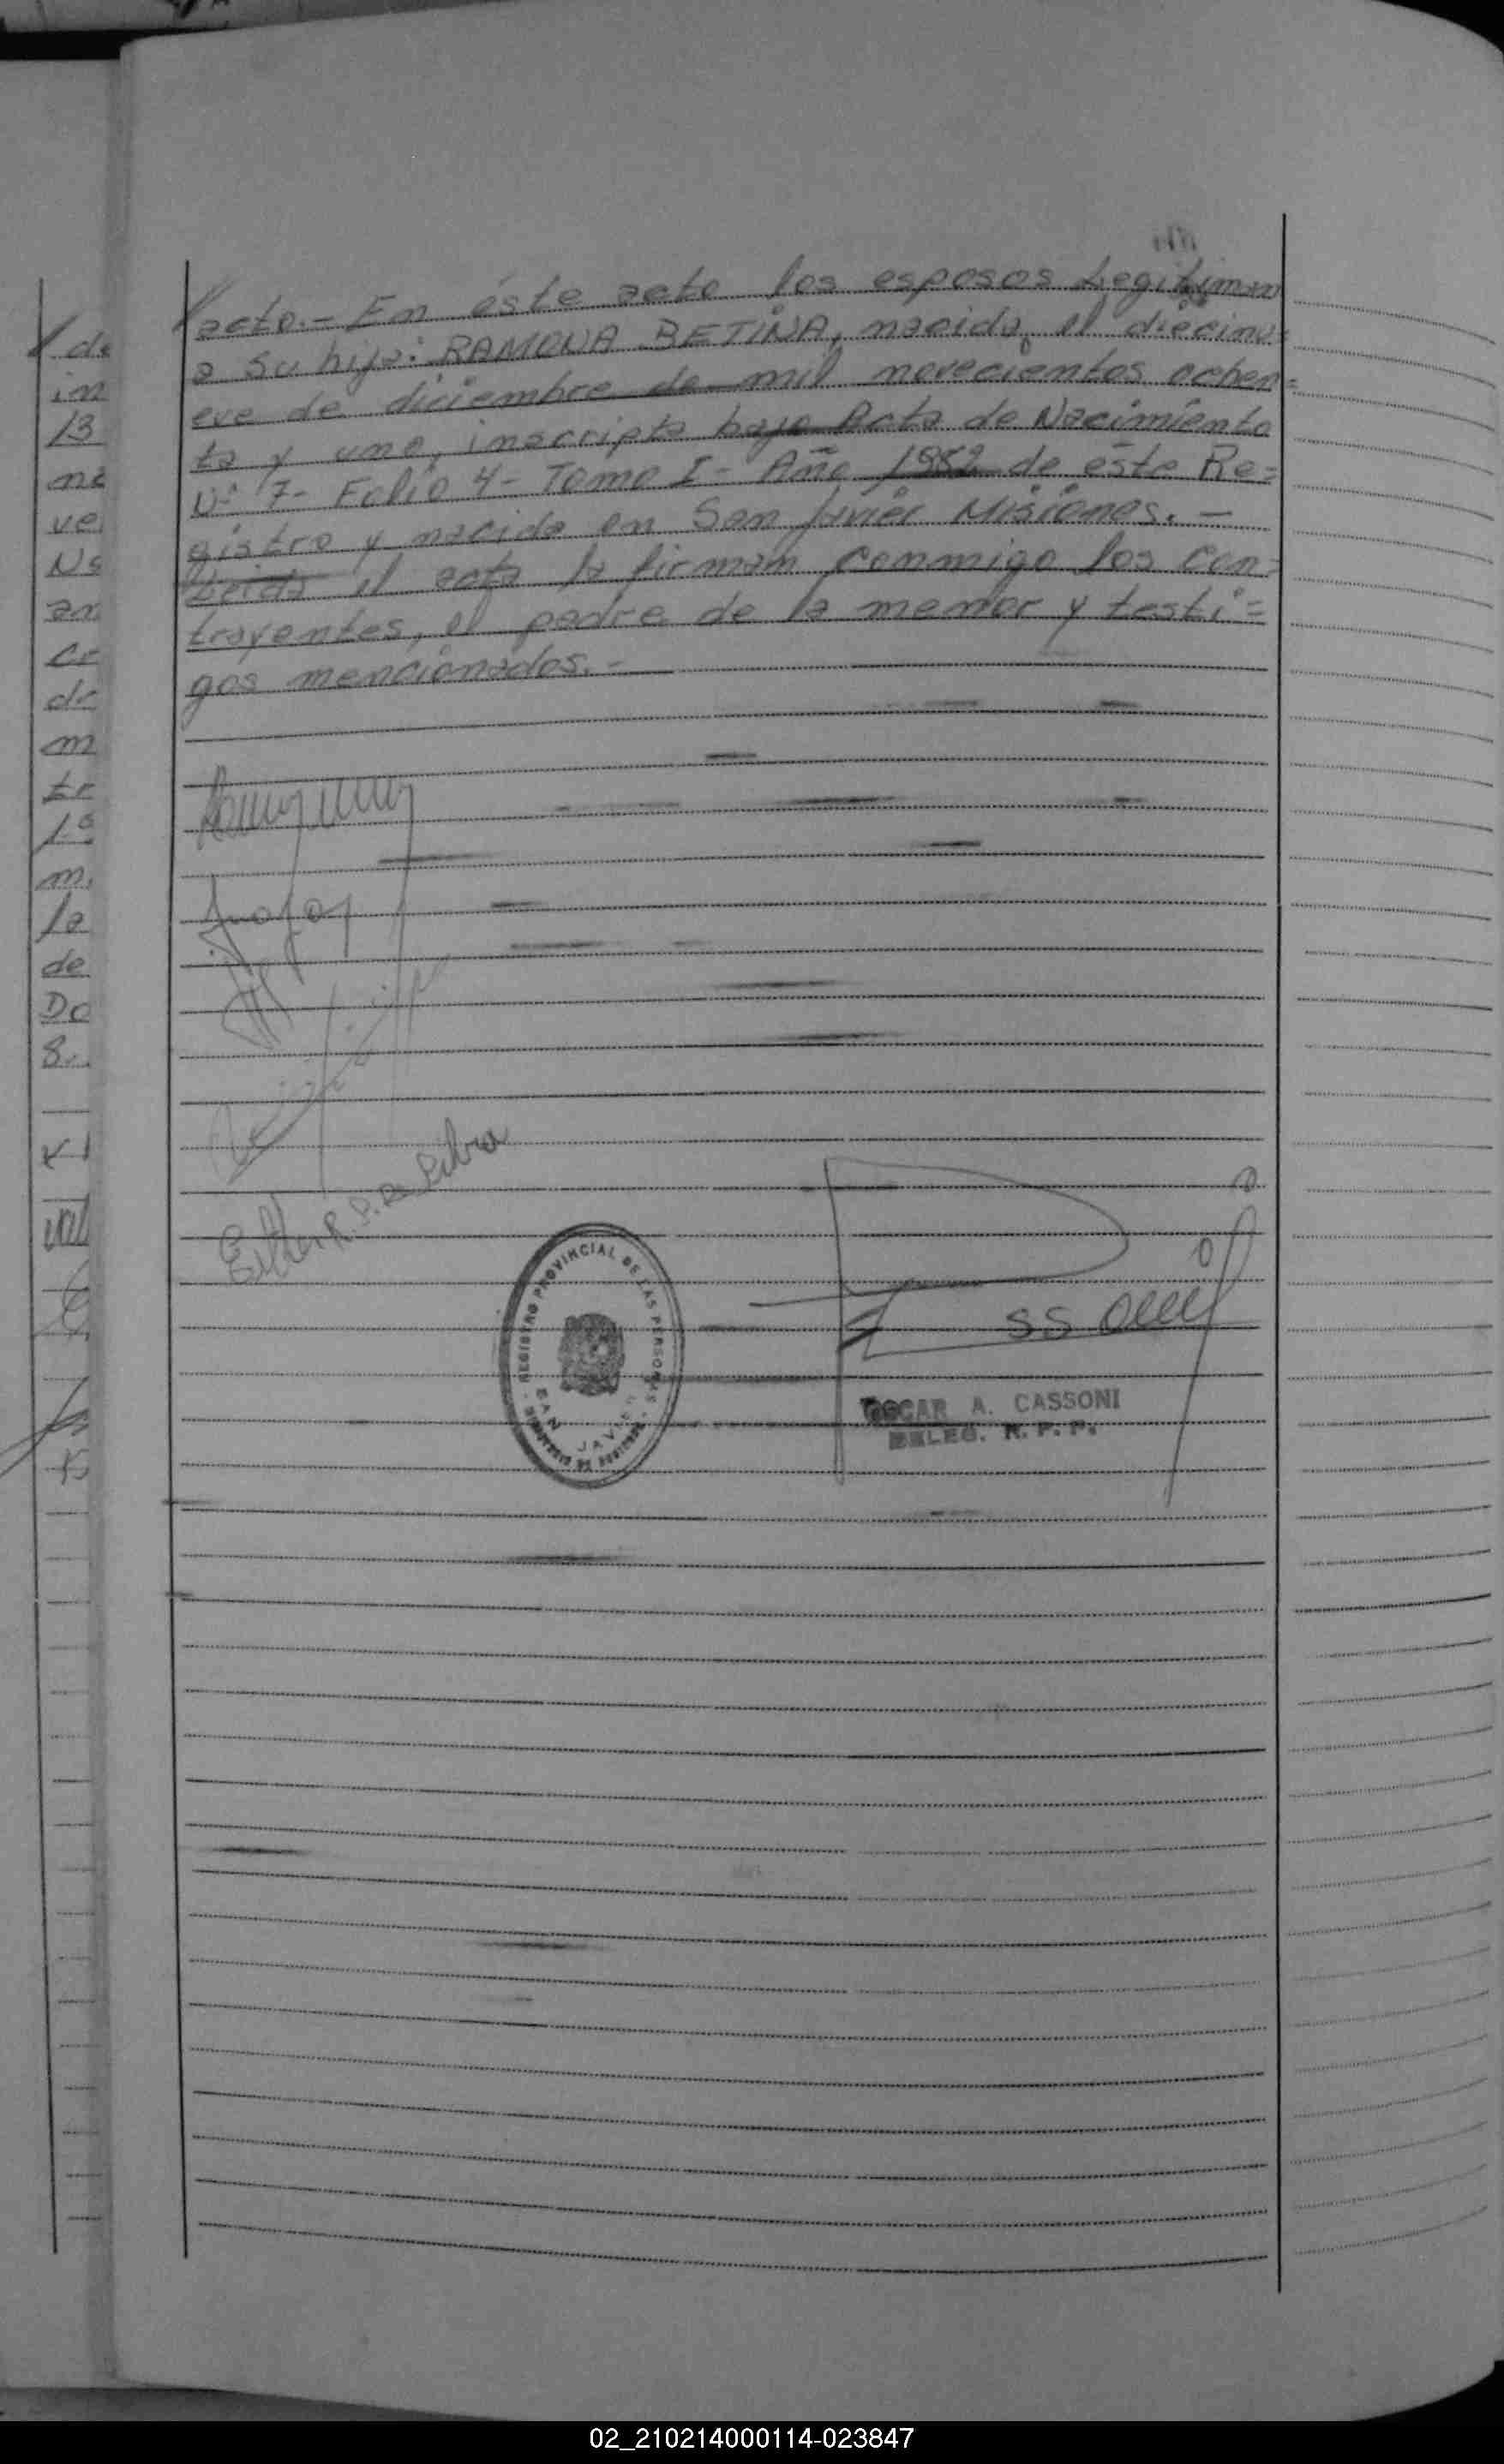 acto.- En éste acto los esposos Legitiman
a su hija: RAMONA BETINA, nacida el diecinu=
eve de diciembre de mil novecientos ochen=
ta y uno, inscripta bajo Acta de Nacimiento
Nº 7- Folio 4- Tomo I- Año 1982 de éste Re=
gistro y nacida en San Javier Misiones.-
Leida el acta la firman conmigo los con=
trayentes, el padre de la menor y testi=
gos mencionados.-
Esther R. S. Da Silva
REGISTRO PROVINCIAL DE LAS PERSONAS
SAN JAVIER
OSCAR A. CASSONI
DELEG. R. P. P.
de
in
13
ne
ve
Ns
an
Cr
de
m
tr
1º
m.
la
de
Do
S
02_210214000114-023847